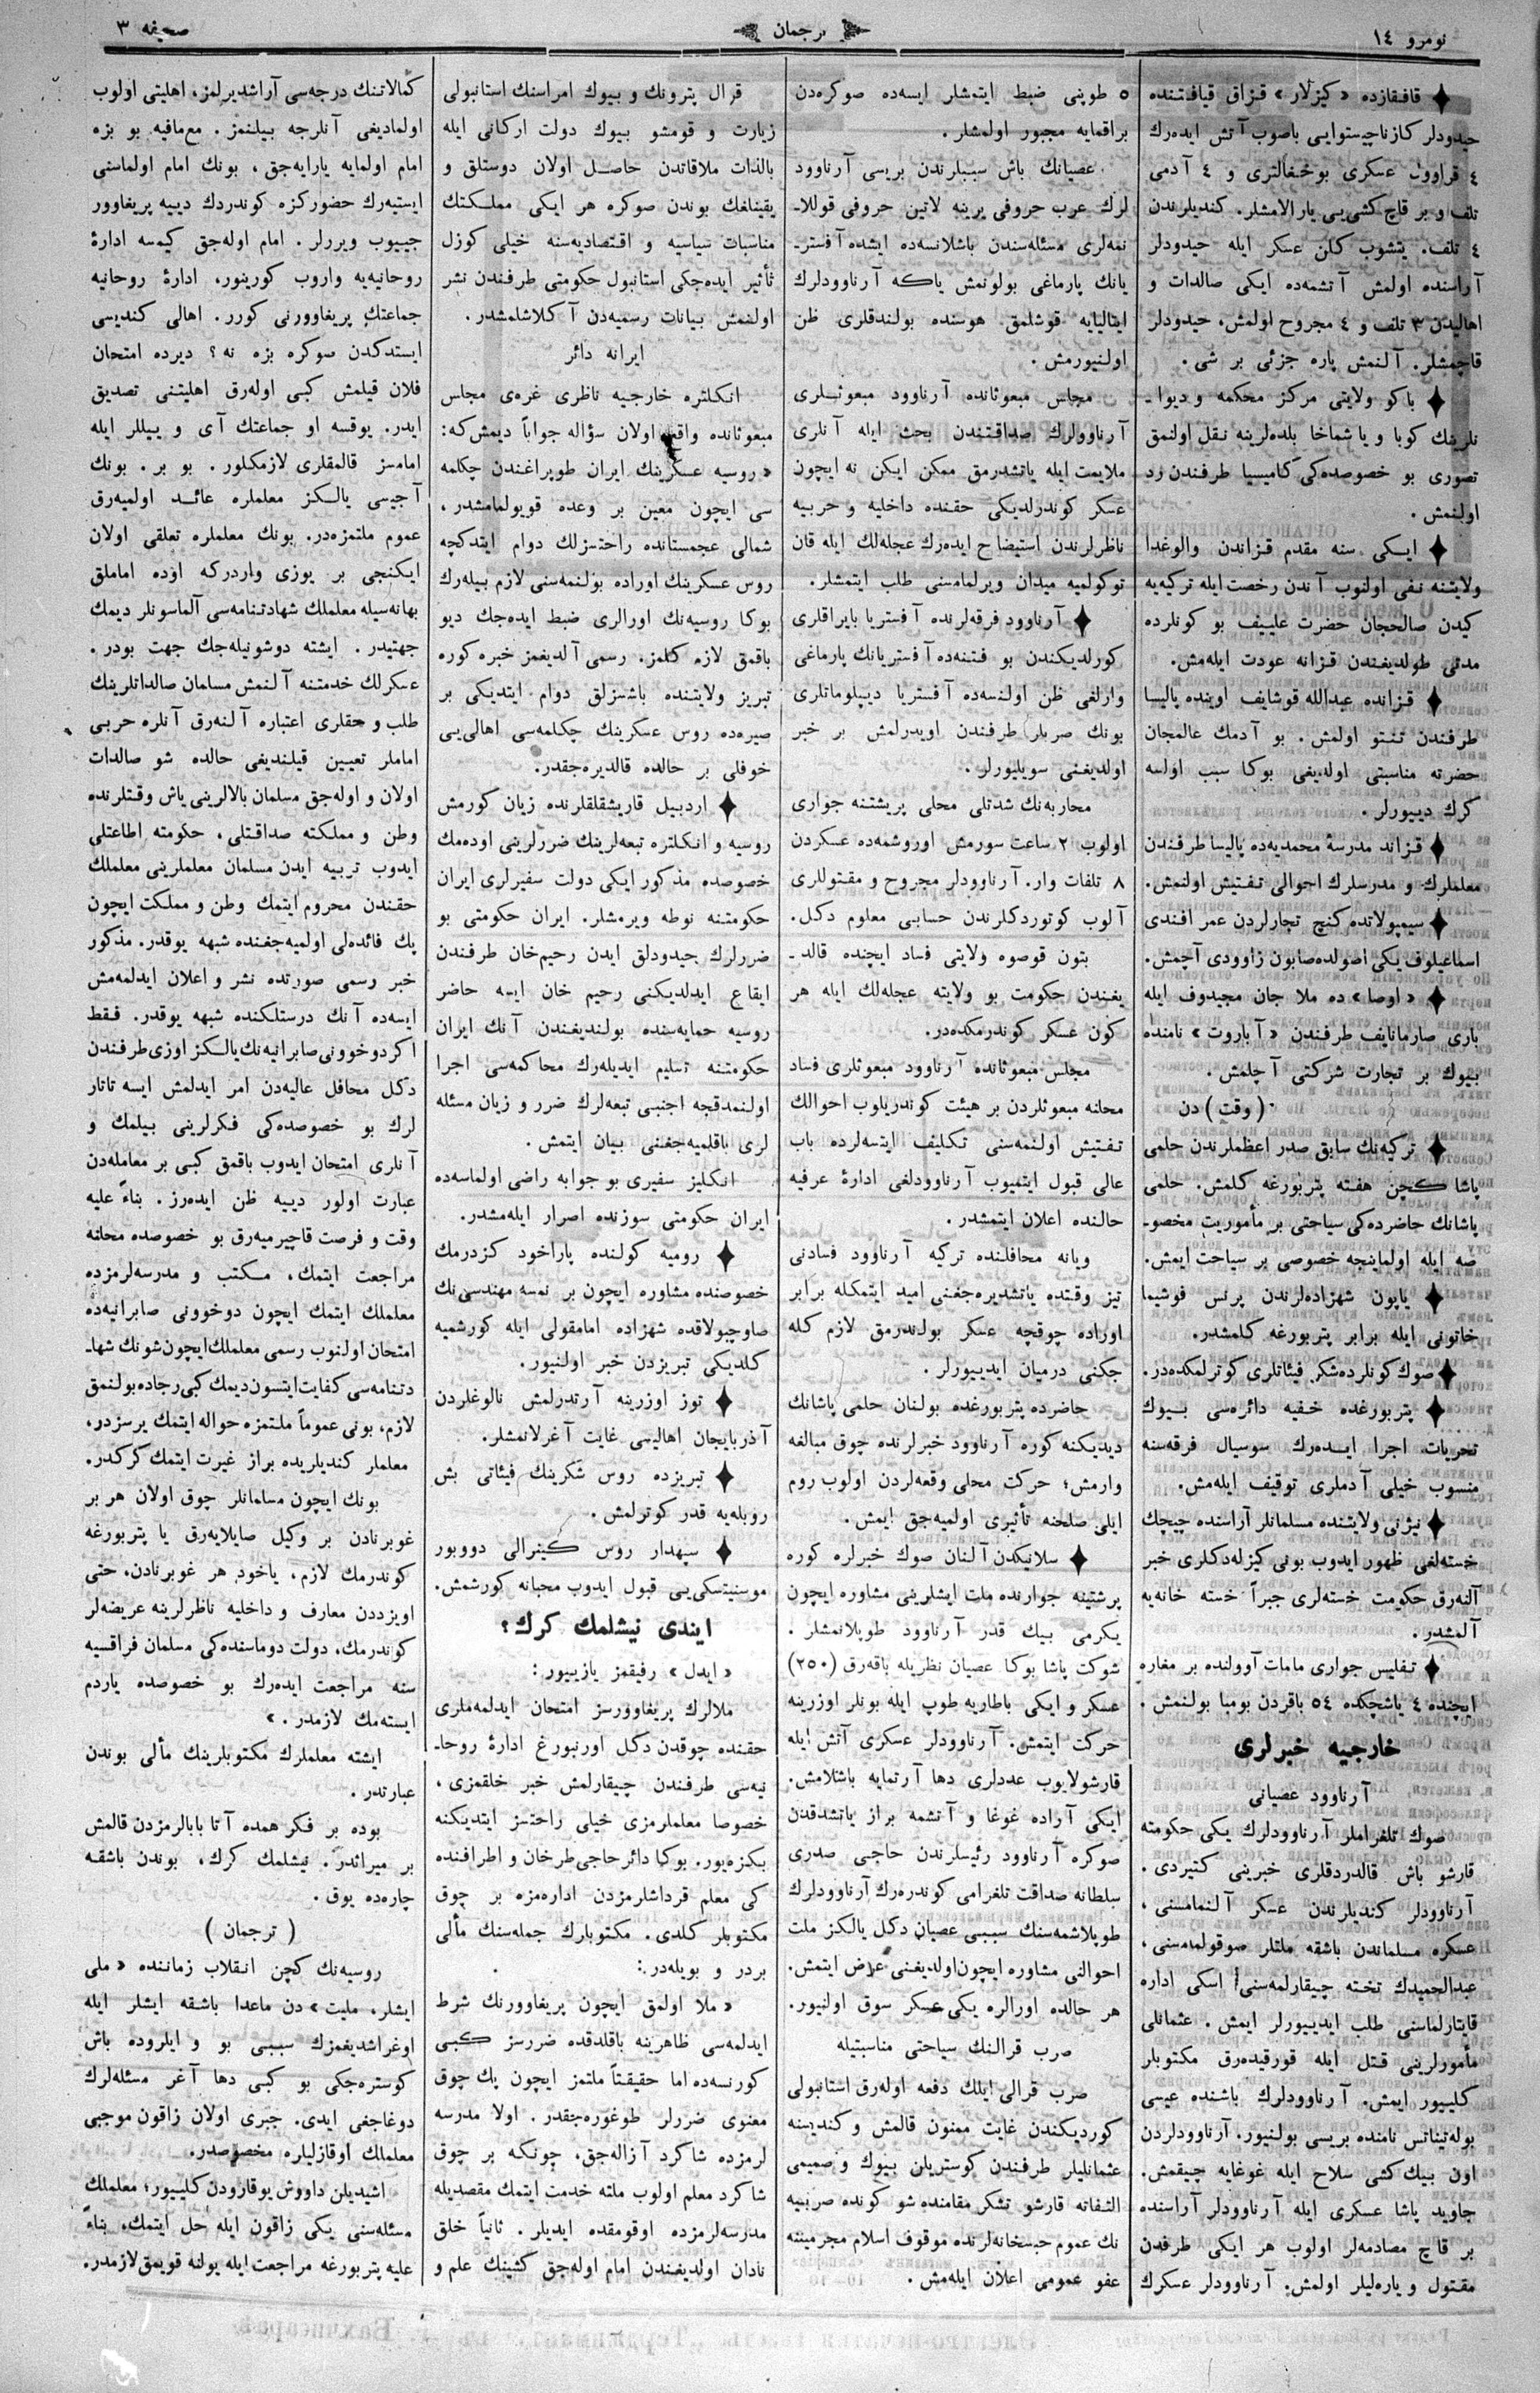 نومرو ١٤
ترجمان
صحيفه ٣
قافقازده «كيزلار» قزاق قيافتنده
حيدودلر كازناچيستوايى باصوب آتش ايده‌رك
٤ قراوول عسكرى بوخغالترى و ٤ آدمى
تلف و بر قاچ كشى‌يى يارالامشلر. كنديلرندن
٤ تلف. يتشوب كلن عسكر ايله حيدودلر
آراسنده اولمش آتشمه‌ده ايكى صالدات و
اهاليدن ٣ تلف و ٤ مجروح اولمش، حيدودلر
قاچمشلر. آلنمش پاره جزئى بر شى.
باكو ولايتى مركز محكمه و ديوا ـ
نلرينك كوبا و يا شماخا بلده‌لرينه نقل اولنمق
تصورى بو خصوصده‌كى كاميسيا طرفندن رد
اولنمش.
ايكى سنه مقدم قزاندن والوغدا
ولايتنه نفى اولنوب آندن رخصت ايله تركيه‌يه
كيدن صالحجان حضرت عليف بو كونلرده
مدتى طولديغندن قزانه عودت ايله‌مش.
قزانده عبدالله قوشايف اوينده پاليسا
طرفندن تنتو اولمش. بو آدمك عالمجان
حضرته مناسبتى اولديغى بوكا سبب اولسه
كرك دييورلر.
قزاند مدرسهٔ محمديه‌ده پاليسا طرفندن
معلملرك و مدرسلرك احوالى تفتيش اولنمش.
سيمپولاتده كنچ تجارلردن عمر افندى
اسماعيلوف يكى اصولده صابون زاوودى آچمش.
«اوصا» ده ملا جان مجيدوف ايله
بارى صارمانايف طرفندن «آباروت» نامنده
بيوك بر تجارت شركتى آچلمش.
(وقت) دن
تركيه‌نك سابق صدر اعظملرندن حلمى
پاشا كچن هفته پتربورغه كلمش. حلمى
پاشانك حاضرده‌كى سياحتى بر مأموريت مخصو ـ
صه ايله اولماينجه خصوصى بر سياحت ايمش.
ياپون شهزاده‌لرندن پرنس فوشيما
خاتونى ايله برابر پتربورغه كلمشدر.
صوك كونلرده شكر فيئاتلرى كوترلمكده‌در.
پتربورغده خفيه دائره‌سى بيوك
تحريات اجرا ايده‌رك سوسيال فرقه‌سنه
منسوب خيلى آدملرى توقيف ايله‌مش.
نيژنى ولايتنده مسلمانلر آراسنده چيچك
خسته‌لغى ظهور ايدوب بونى كيزله‌دكلرى خبر
آلنه‌رق حكومت خسته‌لرى جبراً خسته خانه‌يه
آلمشدر.
تفليس جوارى مامات آوولنده بر مغاره
ايچنده ٤ ياشچكده ٥٤ باقردن بومبا بولنمش.
خارجيه خبرلرى
آرناوود عصيانى
صوك تلغراملر آرناوودلرك يكى حكومته
قارشو باش قالدردقلرى خبرينى كتيردى.
آرناوودلر كنديلرندن عسكر آلنمامسنى،
عسكره مسلماندن باشقه ملتلر صوقولمه‌سنى،
عبدالحميدك تخته چيقارلمه‌سنى، اسكى اداره
قايتارلماسنى طلب ايدييورلر ايمش. عثمانلى
مأمورلرينى قتل ايله قورقيده‌رق مكتوبلر
كلييور ايمش. آرناوودلرك باشنده عيسى
بوله‌تيناتس نامنده بريسى بولنيور. آرناوودلردن
اون بيك كشى سلاح ايله غوغايه چيقمش.
جاويد پاشا عسكرى ايله آرناوودلر آراسنده
بر قاچ مصادمه‌لر اولوب هر ايكى طرفدن
مقتول و ياره‌ليلر اولمش. آرناوودلر عسكرك
٥ طوپنى ضبط ايتمشلر ايسه‌ده صوكره‌دن
براقمايه مجبور اولمشلر.
عصيانك باش سببلرندن بريسى آرناوود
لرك عرب حروفى يرينه لاتين حروفى قوللا ـ
نمه‌لرى مسئله‌سندن باشلانسه‌ده ايشده آفستر ـ
يانك پارماغى بولونمش ياكه آرناوودلرك
ايتاليايه قوشلمق هوسنده بولندقلرى ظن
اولنيورمش.
مجلس مبعوثانده آرناوود مبعوثلرى
آرناوولرك صداقتندن بحث ايله آنلرى
ملايمت ايله ياتشدرمق ممكن ايكن نه ايچون
عسكر كوندرلديكى حقنده داخليه و حربيه
ناظرلرندن استيضاح ايده‌رك عجله‌لك ايله قان
توكولميه ميدان ويرلمامسنى طلب ايتمشلر.
آرناوود فرقه‌لرنده آفستريا بايراقلرى
كورلديكندن بو فتنه‌ده آفستريانك پارماغى
وارلغى ظن اولنسه‌ده آفستريا ديپلوماتلرى
بونك صربلر طرفندن اويدرلمش بر خبر
اولديغنى سويليورلر.
محاربه‌نك شدتلى محلى پريشتنه جوارى
اولوب ٢ ساعت سورمش اوروشمه‌ده عسكردن
٨ تلفات وار. آرناوودلر مجروح و مقتوللرى
آلوب كوتوردكلرندن حسابى معلوم دكل.
بتون قوصوه ولايتى فساد ايچنده قالد ـ
يغندن حكومت بو ولايته عجله‌لك ايله هر
كون عسكر كوندرمكده‌در.
مجلس مبعوثانده آرناوود مبعوثلرى فساد
محلنه مبعوثلردن بر هيئت كوندريلوب احوالك
تفتيش اولنمه‌سنى تكليف ايتسه‌لرده باب
عالى قبول ايتميوب آرناوودلغى ادارهٔ عرفيه
حالنده اعلان ايتمشدر.
ويانه محافلنده تركيه آرناوود فسادنى
تيز وقتده ياتشديره‌جغنى اميد ايتمكله برابر
اوراده چوقچه عسكر بولندرمق لازم كله
جكنى درميان ايدييورلر.
حاضرده پتربورغده بولنان حلمى پاشانك
ديديكنه كوره آرناوود خبرلرنده چوق مبالغه
وارمش؛ حركت محلى وقعه‌لردن اولوب روم
ايلى صلحنه تأثيرى اولميه‌جق ايمش.
سلانيكدن آلنان صوك خبرلره كوره
پرشتينه جوارنده ملت ايشلرينى مشاوره ايچون
يكرمى بيك قدر آرناوود طوپلانمشلر.
شوكت پاشا بوكا عصيان نظريله باقه‌رق (٢٥٠)
عسكر و ايكى باطاريه طوپ ايله بونلر اوزرينه
حركت ايتمش. آرناوودلر عسكرى آتش ايله
قارشولايوب عددلرى دها آرتمايه باشلامش.
ايكى آراده غوغا و آتشمه براز ياتشدقدن
صوكره آرناوود رئيسلرندن حاجى صدرى
سلطانه صداقت تلغرامى كوندره‌رك آرناوودلرك
طوپلاشمه‌سنك سببى عصيان دكل يالكز ملت
احوالنى مشاوره ايچون اولديغنى عرض ايتمش.
هر حالده اورالره يكى عسكر سوق اولنيور.
صرب قرالنك سياحتى مناسبتيله
صرب قرالى ايلك دفعه اوله‌رق استانبولى
كورديكندن غايت ممنون قالمش و كنديسنه
عثمانليلر طرفندن كوستريلن بيوك و صميمى
التفاته قارشو تشكر مقامنده شو كونده صربيه
نك عموم حبسخانه‌لرنده موقوف اسلام مجرمينته
عفو عمومى اعلان ايله‌مش.
قرال پترونك و بيوك امراسنك استانبولى
زيارت و قومشو بيوك دولت اركانى ايله
بالذات ملاقاتدن حاصل اولان دوستلق و
يقينلغك بوندن صوكره هر ايكى مملكتك
مناسبات سياسيه و اقتصاديه‌سنه خيلى كوزل
تأثير ايده‌جكى استانبول حكومتى طرفندن نشر
اولنمش بيانات رسميه‌دن آكلاشلمشدر.
ايرانه دائر
انكلتره خارجيه ناظرى غره‌ى مجلس
مبعوثانده واقع اولان سؤاله جواباً ديمش‌كه:
«روسيه عسكرينك ايران طوپراغندن چكلمه
سى ايچون معين بر وعده قويولمامشدر،
شمالى عجمستانده راحتسزلك دوام ايتدكچه
روس عسكرينك اوراده بولنمه‌سنى لازم بيله‌رك
بوكا روسيه‌نك اورالرى ضبط ايده‌جك ديو
باقمق لازم كلمز. رسمى آلديغمز خبره كوره
تبريز ولايتنده باشسزلق دوام ايتديكى بر
صيره‌ده روس عسكرينك چكلمه‌سى اهالى‌يى
خوفلى بر حالده قالديره‌جقدر.
اردبيل قاريشقلقلرنده زيان كورمش
روسيه و انكلتره تبعه‌لرينك ضررلرينى اوده‌مك
خصوصده مذكور ايكى دولت سفيرلرى ايران
حكومتنه نوطه ويرمشلر. ايران حكومتى بو
ضررلرك حيدودلق ايدن رحيم‌خان طرفندن
ايقاع ايدلديكنى رحيم خان ايسه حاضر
روسيه حمايه‌سنده بولنديغندن آنك ايران
حكومتنه تسليم ايديله‌رك محاكمه‌سى اجرا
اولنمدقجه اجنبى تبعه‌لرك ضرر و زيان مسئله
لرى باقلميه‌جغنى بيان ايتمش.
انكليز سفيرى بو جوابه راضى اولماسه‌ده
ايران حكومتى سوزنده اصرار ايله‌مشدر.
روميه كولنده پاراخود كزدرمك
خصوصنده مشاوره ايچون بر نمسه مهندسى‌نك
صاوچبولاقده شهزاده امامقولى ايله كورشميه
كلديكى تبريزدن خبر اولنيور.
توز اوزرينه آرتدرلمش نالوغلردن
آذربايجان اهاليسى غايت آغرلانمشلر.
تبريزده روس شكرينك فيئاتى بش
روبله‌يه قدر كوترلمش.
سپهدار روس كينرالى دووبور
موسنيتسكى‌يى قبول ايدوب محبانه كورشمش.
ايندى نيشلمك كرك؟
«ايدل» رفيقمز يازييور:
ملالرك پريغاوورسز امتحان ايدلمه‌ملرى
حقنده چوقدن دكل اورنبورغ ادارهٔ روحا ـ
نيه‌سى طرفندن چيقارلمش خبر خلقمزى،
خصوصا معلملرمزى خيلى راحتسز ايتديكنه
بكزه‌يور. بوكا دائر حاجى طرخان و اطرافنده
كى معلم قرداشلرمزدن اداره‌مزه بر چوق
مكتوبلر كلدى. مكتوبلرك جمله‌سنك مألى
بردر و بويله‌در:
«ملا اولمق ايچون پريغاوورنك شرط
ايدلمه‌سى ظاهرينه باقلدقده ضررسز كبى
كورنسه‌ده اما حقيقتاً ملتمز ايچون پك چوق
معنوى ضررلر طوغوره‌جقدر. اولا مدرسه
لرمزده شاكرد آزاله‌جق، چونكه بر چوق
شاكرد معلم اولوب ملته خدمت ايتمك مقصديله
مدرسه‌لرمزده اوقومقده ايديلر. ثانياً خلق
نادان اولديغندن امام اوله‌جق كشينك علم و
كمالاتنك درجه‌سى آراشديرلمز، اهليتى اولوب
اولماديغى آنلرجه بيلنمز. مع‌مافيه بو بزه
امام اولمايه يارايه‌جق، بونك امام اولماسنى
ايستيه‌رك حضوركزه كوندردك دييه پريغاوور
جييوب ويررلر. امام اوله‌جق كيمسه ادارهٔ
روحانيه‌يه واروب كورينور، ادارهٔ روحانيه
جماعتك پريغاوورنى كورر. اهالى كنديسى
ايستدكدن صوكره بزه نه؟ ديرده امتحان
فلان قيلمش كبى اوله‌رق اهليتنى تصديق
ايدر. يوقسه او جماعتك آى و ييللر ايله
امامسز قالمقلرى لازمكلور. بو بر. بونك
آجيسى يالكز معلملره عائد اولميه‌رق
عموم ملتمزه‌در. بونك معلملره تعلقى اولان
ايكنجى بر يوزى واردركه اوده اماملق
بهانه‌سيله معلملك شهادتنامه‌سى آلماسونلر ديمك
جهتيدر. ايشته دوشونيله‌جك جهت بودر.
عسكرلك خدمتنه آلنمش مسلمان صالداتلرينك
طلب و حقلرى اعتباره آلنه‌رق آنلره حربى
اماملر تعيين قيلنديغى حالده شو صالدات
اولان و اوله‌جق مسلمان بالالرينى ياش وقتلرنده
وطن و مملكته صداقتلى، حكومته اطاعتلى
ايدوب تربيه ايدن مسلمان معلملرينى معلملك
حقندن محروم ايتمك وطن و مملكت ايچون
پك فائده‌لى اولميه‌جغنده شبهه يوقدر. مذكور
خبر رسمى صورتده نشر و اعلان ايدلمه‌مش
ايسه‌ده آنك درستلكنده شبهه يوقدر. فقط
اكر دوخوونى صابرانيه‌نك يالكز اوزى طرفندن
دكل محافل عاليه‌دن امر ايدلمش ايسه تاتار
لرك بو خصوصده‌كى فكرلرينى بيلمك و
آنلرى امتحان ايدوب باقمق كبى بر معامله‌دن
عبارت اولور دييه ظن ايده‌رز. بناءً عليه
وقت و فرصت قاچيرميه‌رق بو خصوصده محلنه
مراجعت ايتمك، مكتب و مدرسه‌لرمزده
معلملك ايتمك ايچون دوخوونى صابرانيه‌ده
امتحان اولنوب رسمى معلملك ايچون شونك شها ـ
دتنامه‌سى كفايت ايتسون ديمك كبى رجاده بولنمق
لازم، بونى عموماً ملتمزه حواله ايتمك يرسزدر،
معلملر كنديلريده براز غيرت ايتمك كركدر.
بونك ايچون مسلمانلر چوق اولان هر بر
غوبرنادن بر وكيل صايلايه‌رق يا پتربورغه
كوندرمك لازم، ياخود هر غوبرنادن، حتى
اويزددن معارف و داخليه ناظرلرينه عريضه‌لر
كوندرمك، دولت دوماسنده‌كى مسلمان فراقسيه
سنه مراجعت ايده‌رك بو خصوصده ياردم
ايسته‌مك لازمدر.»
ايشته معلملرك مكتوبلرينك مألى بوندن
عبارتدر.
بوده بر فكر همده آتا بابالرمزدن قالمش
بر ميراثدر. نيشلمك كرك، بوندن باشقه
چاره‌ده يوق.
(ترجمان)
روسيه‌نك كچن انقلاب زماننده «ملى
ايشلر، مليت» دن ماعدا باشقه ايشلر ايله
اوغراشديغمزك سببى بو و ايلروده باش
كوستره‌جكى بو كبى دها آغر مسئله‌لرك
دوغاجغى ايدى. جبرى اولان زاقون موجبى
معلملك اوقازليلره مخصوصدر.
اشيديلن داووش يوقارودن كلييور؛ معلملك
مسئله‌سنى يكى زاقون ايله حل ايتمك، بناءً
عليه پتربورغه مراجعت ايله يولنه قويمق لازمدر.